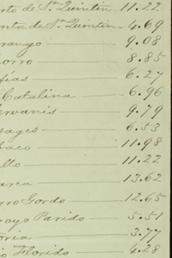 rto de Sn. Quintin 11.22
nta de Sn. Quintin 4.69
rango 9.08
orro 8.85
fias 6.27
Catalina 6.96
ervanis 9.79
sages 6.53
aco 11.98
llo 11.22
arca 13.62
rro Gordo 12.65
royo Parido 5.51
oria 3.77
io Florido 4.28